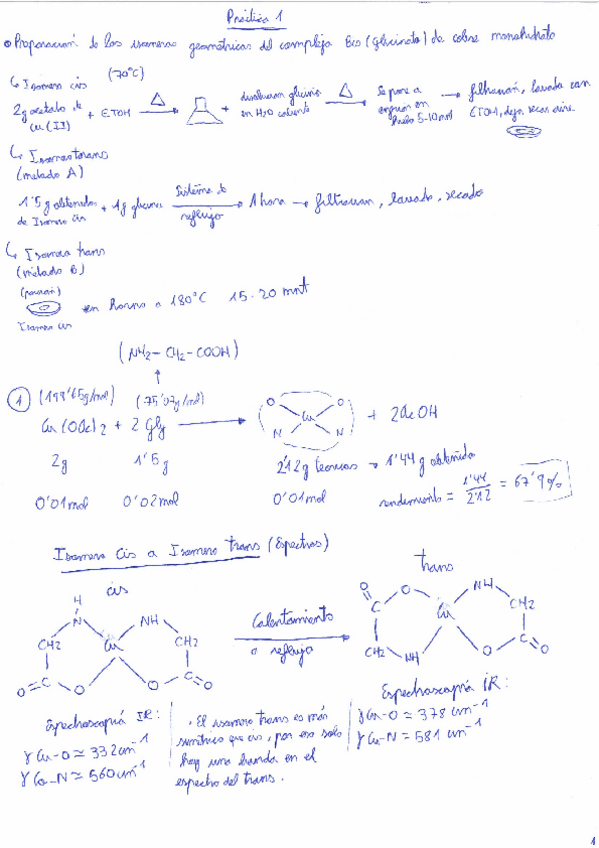 Práctica 1
Preparación de los isómeros geométricos del complejo Bis (glicinato) de cobre monohidrato
↳ Isómero cis (70°C)
2g acetato de Cu (II) + ETOH → Δ + disolución glicina en H2O caliente → Δ Se pone a enfriar en hielo 5-10 mnt → filtración, lavado con ETOH, dejo secar aire.
↳ Isómero trans
(método A)
1'5 g obtenidos de Isómero cis + 1g glicina → Sistema de reflujo 1 hora → filtración, lavado, secado
↳ Isómero trans
(método B)
(porción)
en horno a 180°C 15-20 mnt
Isómero cis
(NH2 - CH2 - COOH)
↑
1 (199'65g/mol) (75'07g/mol)
Cu(OAc)2 + 2 Gly → O O Cu N N + 2AcOH
2g 1'5g 2'12g teóricos → 1'44 g obtenido
0'01mol 0'02mol 0'01mol rendimiento = 1'44 / 2'12 = 67'9%
Isómero Cis a Isómero trans (Espectros)
cis
trans
H
N NH
CH2 Cu CH2
O=C O O C=O
Calentamiento
a reflujo
O C O NH
Cu CH2
CH2 NH O C O
Espectroscopía IR:
γ Cu-O ≃ 332 cm-1
γ Cu-N ≃ 560 cm-1
. El isómero trans es más
simétrico que cis, por eso solo
hay una banda en el
espectro del trans.
Espectroscopía IR:
γ Cu-O = 378 cm-1
γ Cu-N = 581 cm-1
1